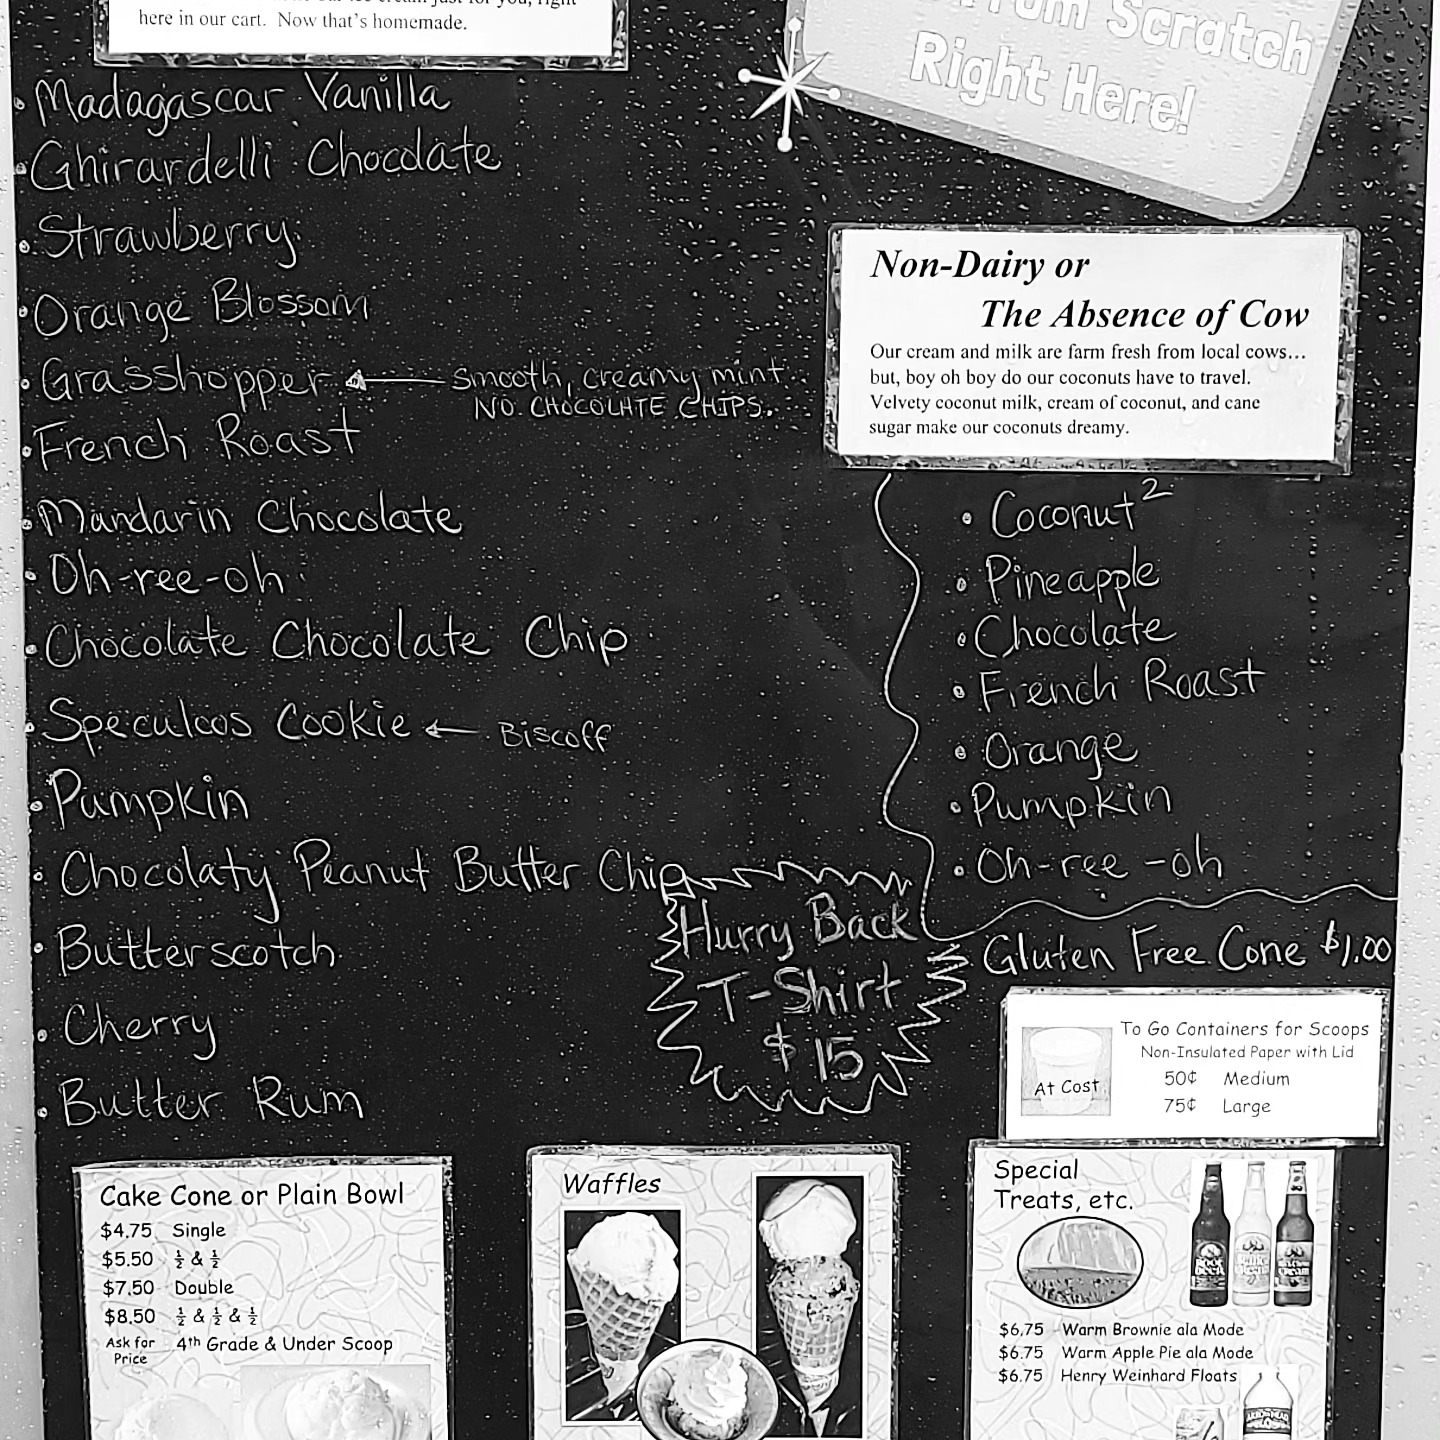 here in our cart. Now that's homemade.
From Scratch
Right Here!
• Madagascar Vanilla
• Ghirardelli Chocolate
• Strawberry
• Orange Blossom
• Grasshopper ← smooth, creamy mint
NO CHOCOLATE CHIPS.
• French Roast
• Mandarin Chocolate
• Oh-ree-oh
• Chocolate Chocolate Chip
• Speculoos Cookie ← Biscoff
• Pumpkin
• Chocolaty Peanut Butter Chip
• Butterscotch
• Cherry
• Butter Rum
Non-Dairy or
The Absence of Cow
Our cream and milk are farm fresh from local cows...
but, boy oh boy do our coconuts have to travel.
Velvety coconut milk, cream of coconut, and cane
sugar make our coconuts dreamy.
• Coconut²
• Pineapple
• Chocolate
• French Roast
• Orange
• Pumpkin
• Oh-ree-oh
Hurry Back
T-Shirt
$15
Gluten Free Cone $1.00
To Go Containers for Scoops
Non-Insulated Paper with Lid
At Cost
50¢ Medium
75¢ Large
Cake Cone or Plain Bowl
$4.75 Single
$5.50 ½ & ½
$7.50 Double
$8.50 ½ & ½ & ½
Ask for Price 4th Grade & Under Scoop
Waffles
Special
Treats, etc.
$6.75 Warm Brownie ala Mode
$6.75 Warm Apple Pie ala Mode
$6.75 Henry Weinhard Floats